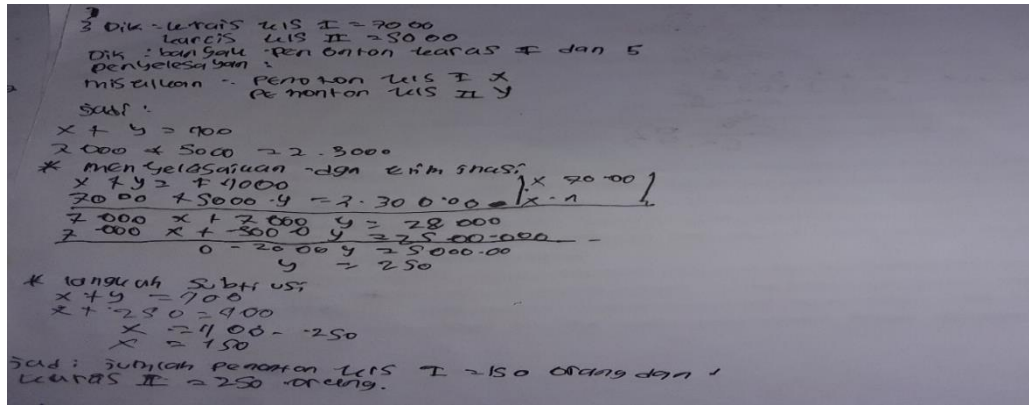 3 Dik = Kracis kls I = 7000
karcis kls II = 5000
Dik : bangak penonton karas I dan 5
penyelesayan :
misalkan : penonton kls I x
penonton kls II y
Jadi :
x + y = 400
7000 + 5000 = 2.3000
* menyelasaikan dgn eriminasi
x + y = + 4000 | x 70.00
7000 + 5000.y = 2.300.00 | x.1
7000 x + 7000 y = 28000
7000 x + 5000 y = 2500.000 -
0 - 2000 y = 5000.00
y = 250
* langkah subtiusi
x + y = 400
x + 250 = 400
x = 400 - 250
x = 150
Jadi : jumlah penonton kls I = 150 orang dan
karas II = 250 orang.